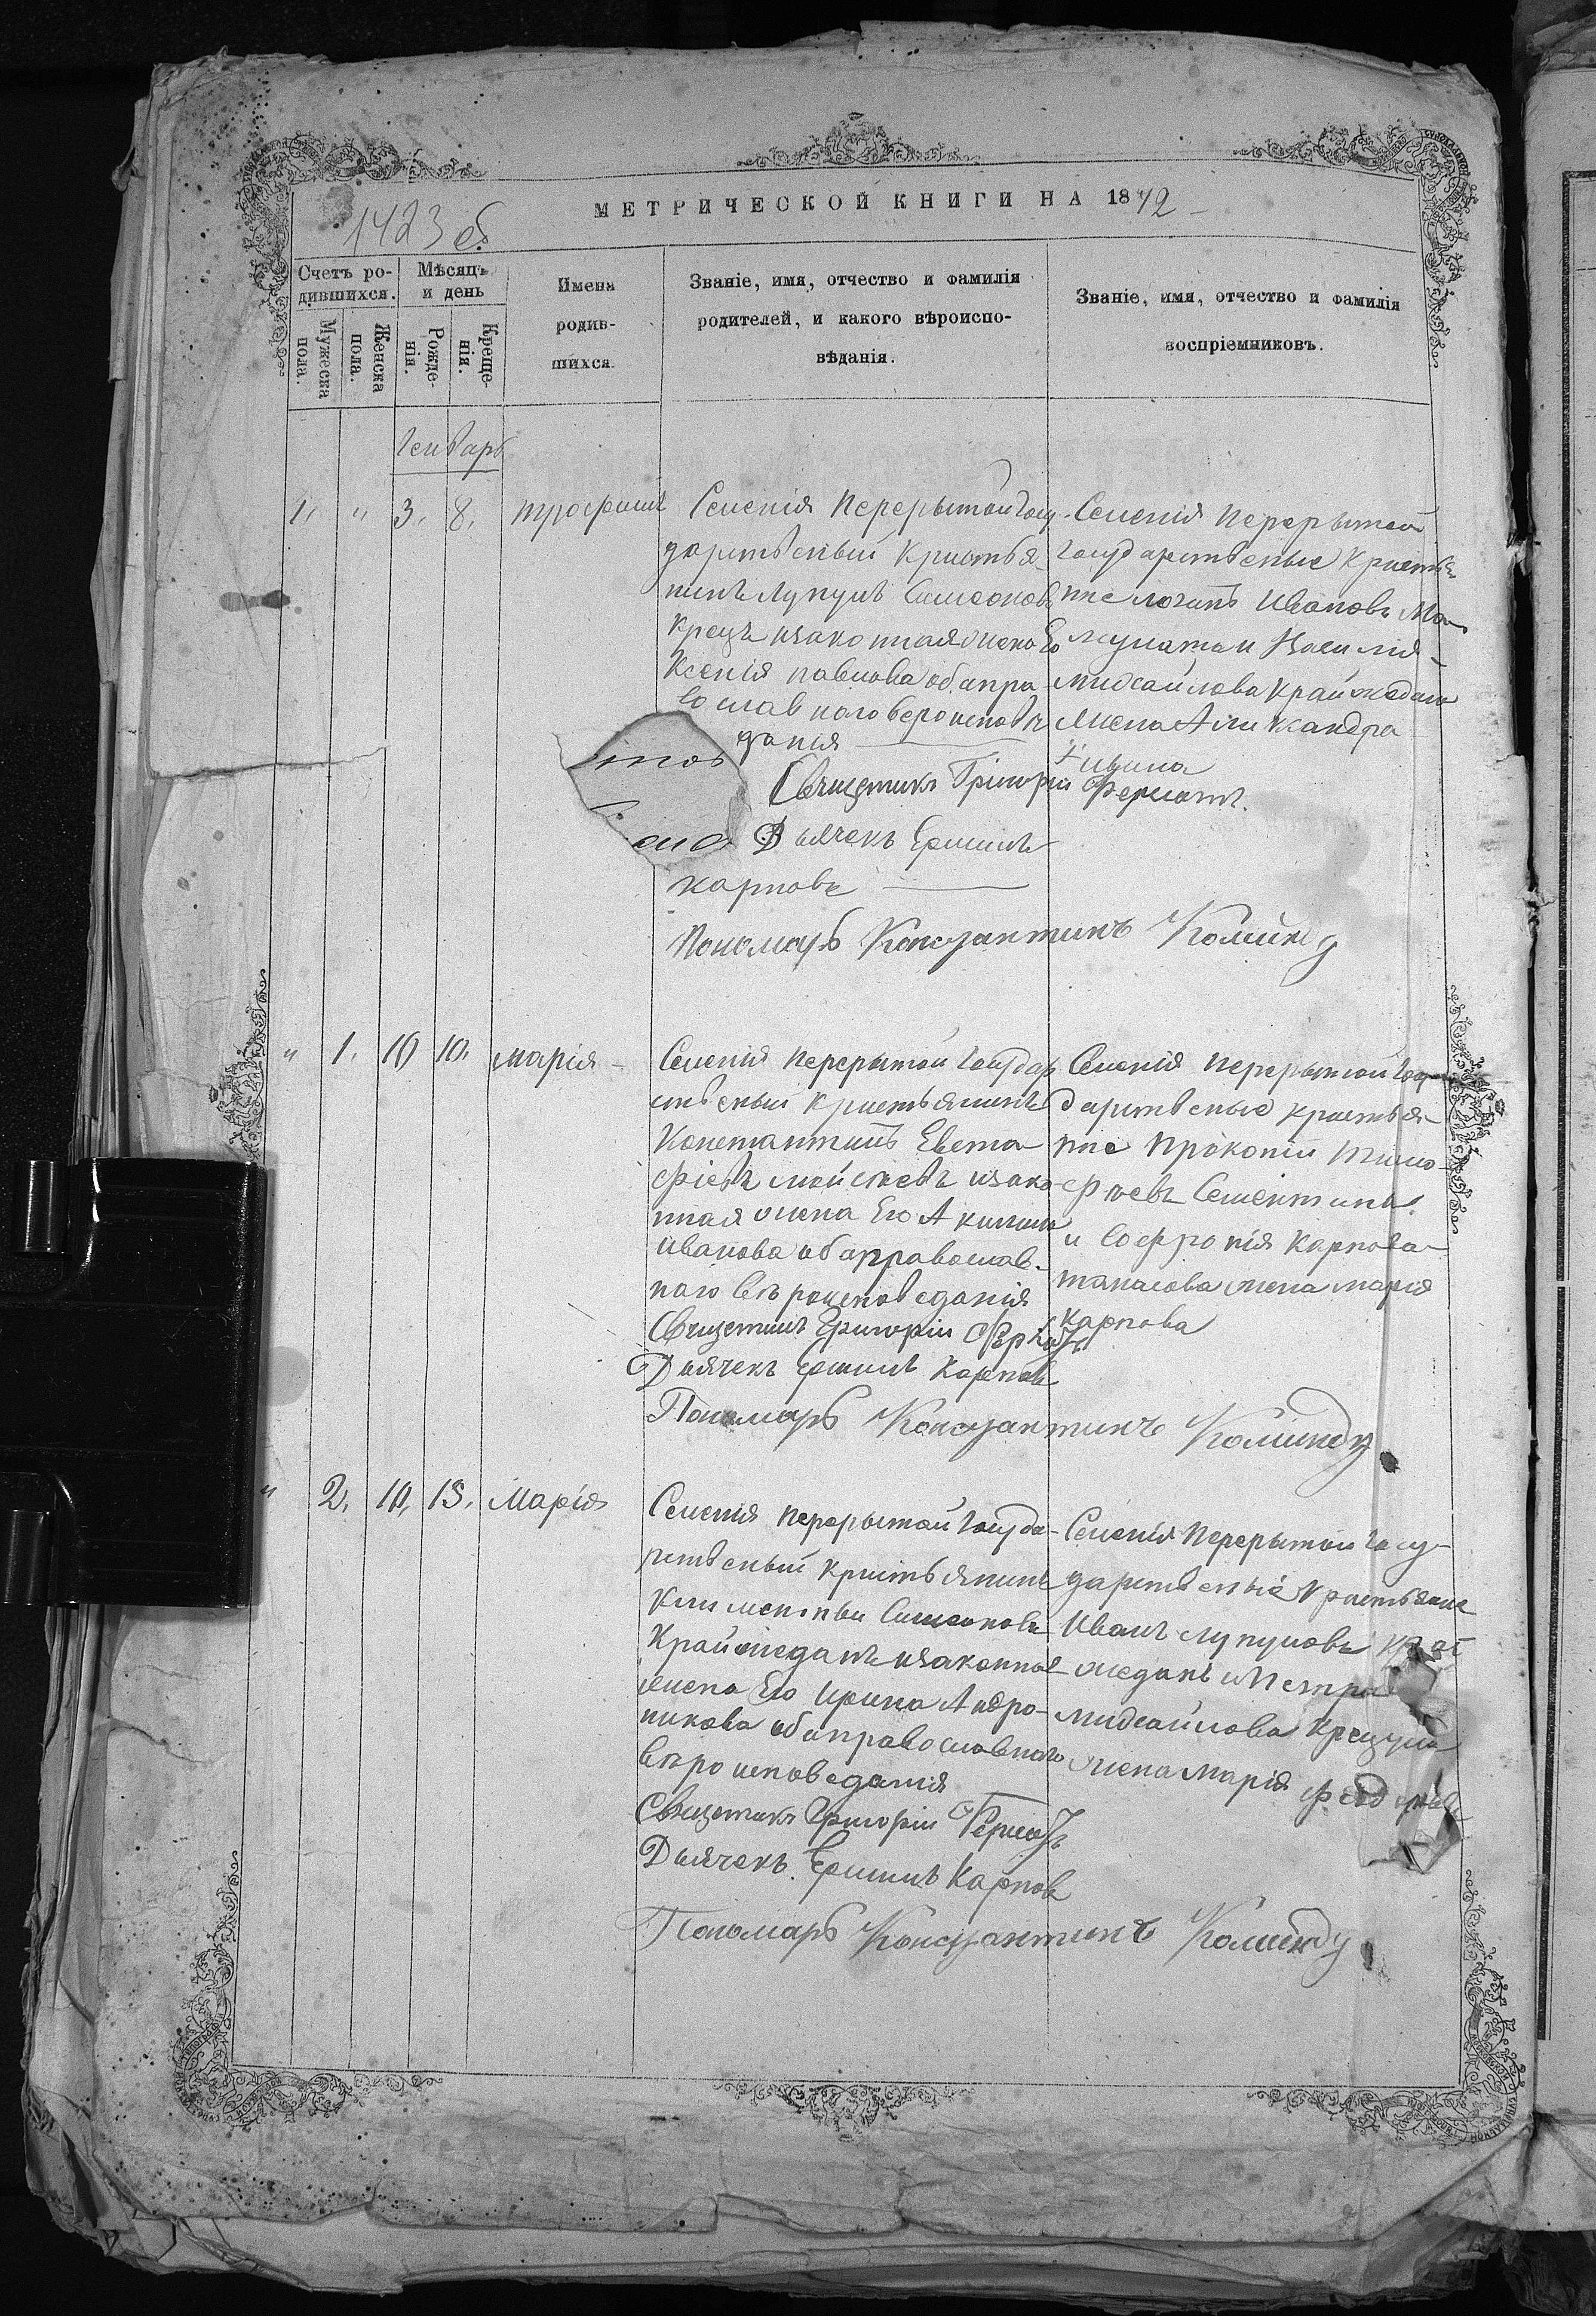 МЕТРИЧЕСКОЙ КНИГИ НА 1872
1423 об
Счетъ ро-
дившихся.
Мужеска
пола.
Женска
пола.
Мѣсяцъ
и день
Рожде-
нія.
Креще-
нія.
Имена
родив-
шихся.
Званіе, имя, отчество и фамилія
родителей, и какого вѣроиспо-
вѣданія.
Званіе, имя, отчество и фамилія
воспріемниковъ.
Генварь
1, " 3, 8, трофимъ
Селенія Перерытой Госу
дарственый Кристья-
нинъ Лупулъ Симеоновъ
изаконная жена Его
Ксенія павлова оба пра-
вославнаго вероисповѣ
данія
Священикъ Григорій
Дьячекъ Ефимъ
карповъ
Пономарь Константинъ
Селенія Перерытой
Государственые Кристья
не Ивановъ
и Василія
михайлова Крайждан
жена Александра
" 1, 10 10, марія
Селенія Перерытой Государ
ственый Кристьянинъ
Константинъ Евста-
фіевъ изако-
нная жена Его Акилина
иванова оба православ-
наго вѣроисповеданія
Священикъ Григорій
Дьячекъ Ефимъ Карповъ
Пономарь Константинъ
Селенія Перерытой Госу
дарственые кристья-
не Прокопій тимо-
феевъ
и Софронія Карпова
жена марія
Карпова
" 2, 10, 15, Марія
Селенія Перерытой Госуда-
рственый Кристьянинъ
Климентій Симеоновъ
Крайжеданъ изаконная
жена Его Ирина Андро-
никова оба православнаго
вѣроисповеданія
Священикъ Григорій
Дьячекъ Ефимъ Карповъ
Пономарь Константинъ
Селенія Перерытой Госу-
дарственые Кристьяне
Иванъ Лупуловъ Край
жеданъ и Петра
михайлова
жена Марія